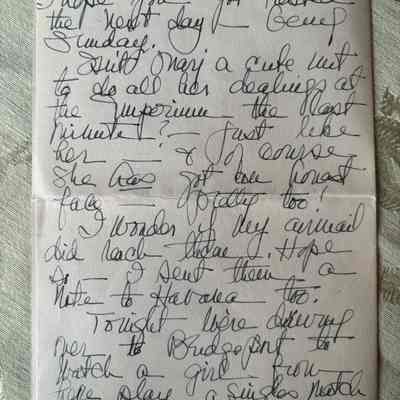 you got
the next day – being
Sunday.
Isn't Mary a cute nut
to do all her dealings at
the Emporium the last
minute? – just like
her – & of course
she was got an honest
face – pretty too!
I wonder if my airmail
did reach them. Hope
so – I sent them a
note to Havana too.
Tonight we're driving
over to Bridgeport to
watch a girl from
here play a singles match